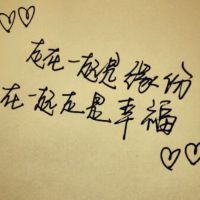 走在一起是缘份
在一起走是幸福